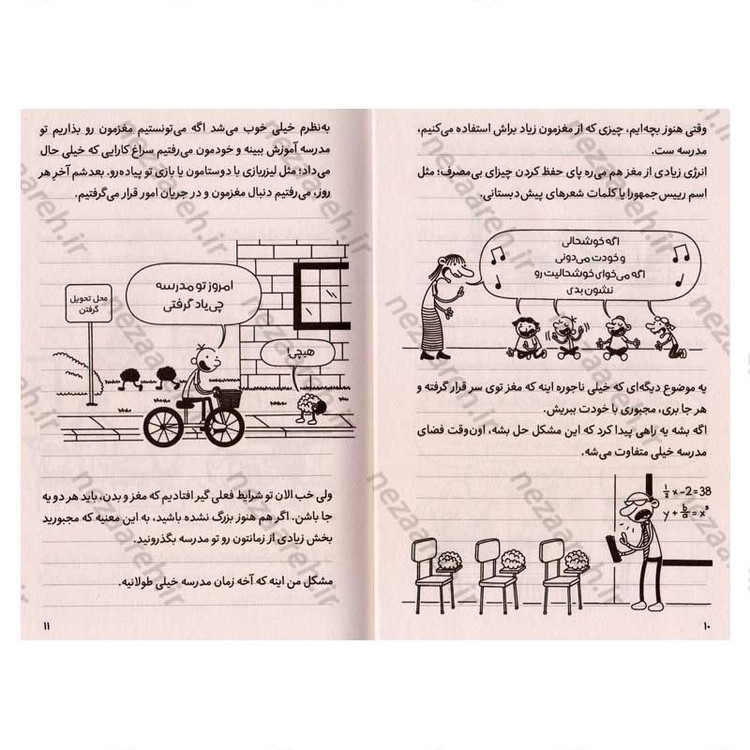 وقتی هنوز بچه‌ایم، چیزی که از مغزمون زیاد براش استفاده می‌کنیم،
مدرسه ست.
انرژی زیادی از مغز هم می‌ره پای حفظ کردن چیزای بی‌مصرف؛ مثل
اسم رییس جمهورا یا کلمات شعرهای پیش‌دبستانی.
اگه خوشحالی
و خودت می‌دونی
اگه می‌خوای خوشحالیت رو
نشون بدی
یه موضوع دیگه‌ای که خیلی ناجوره اینه که مغز توی سر قرار گرفته و
هر جا بری، مجبوری با خودت ببریش.
اگه بشه یه راهی پیدا کرد که این مشکل حل بشه، اون‌وقت فضای
مدرسه خیلی متفاوت می‌شه.
½x-2=38
y+b/a=x³
۱۰
به‌نظرم خیلی خوب می‌شد اگه می‌تونستیم مغزمون رو بذاریم تو
مدرسه آموزش ببینه و خودمون می‌رفتیم سراغ کارایی که خیلی حال
می‌داد؛ مثل لیزربازی با دوستامون یا بازی تو پیاده‌رو. بعدشم آخرِ هر
روز، می‌رفتیم دنبال مغزمون و در جریان امور قرار می‌گرفتیم.
محل تحویل
گرفتن
امروز تو مدرسه
چی یاد گرفتی
هیچی!
ولی خب الان تو شرایط فعلی گیر افتادیم که مغز و بدن، باید هر دو یه
جا باشن. اگر هم هنوز بزرگ نشده باشید، به این معنیه که مجبورید
بخش زیادی از زمانتون رو تو مدرسه بگذرونید.
مشکل من اینه که آخه زمان مدرسه خیلی طولانیه.
۱۱
nezaareh.ir